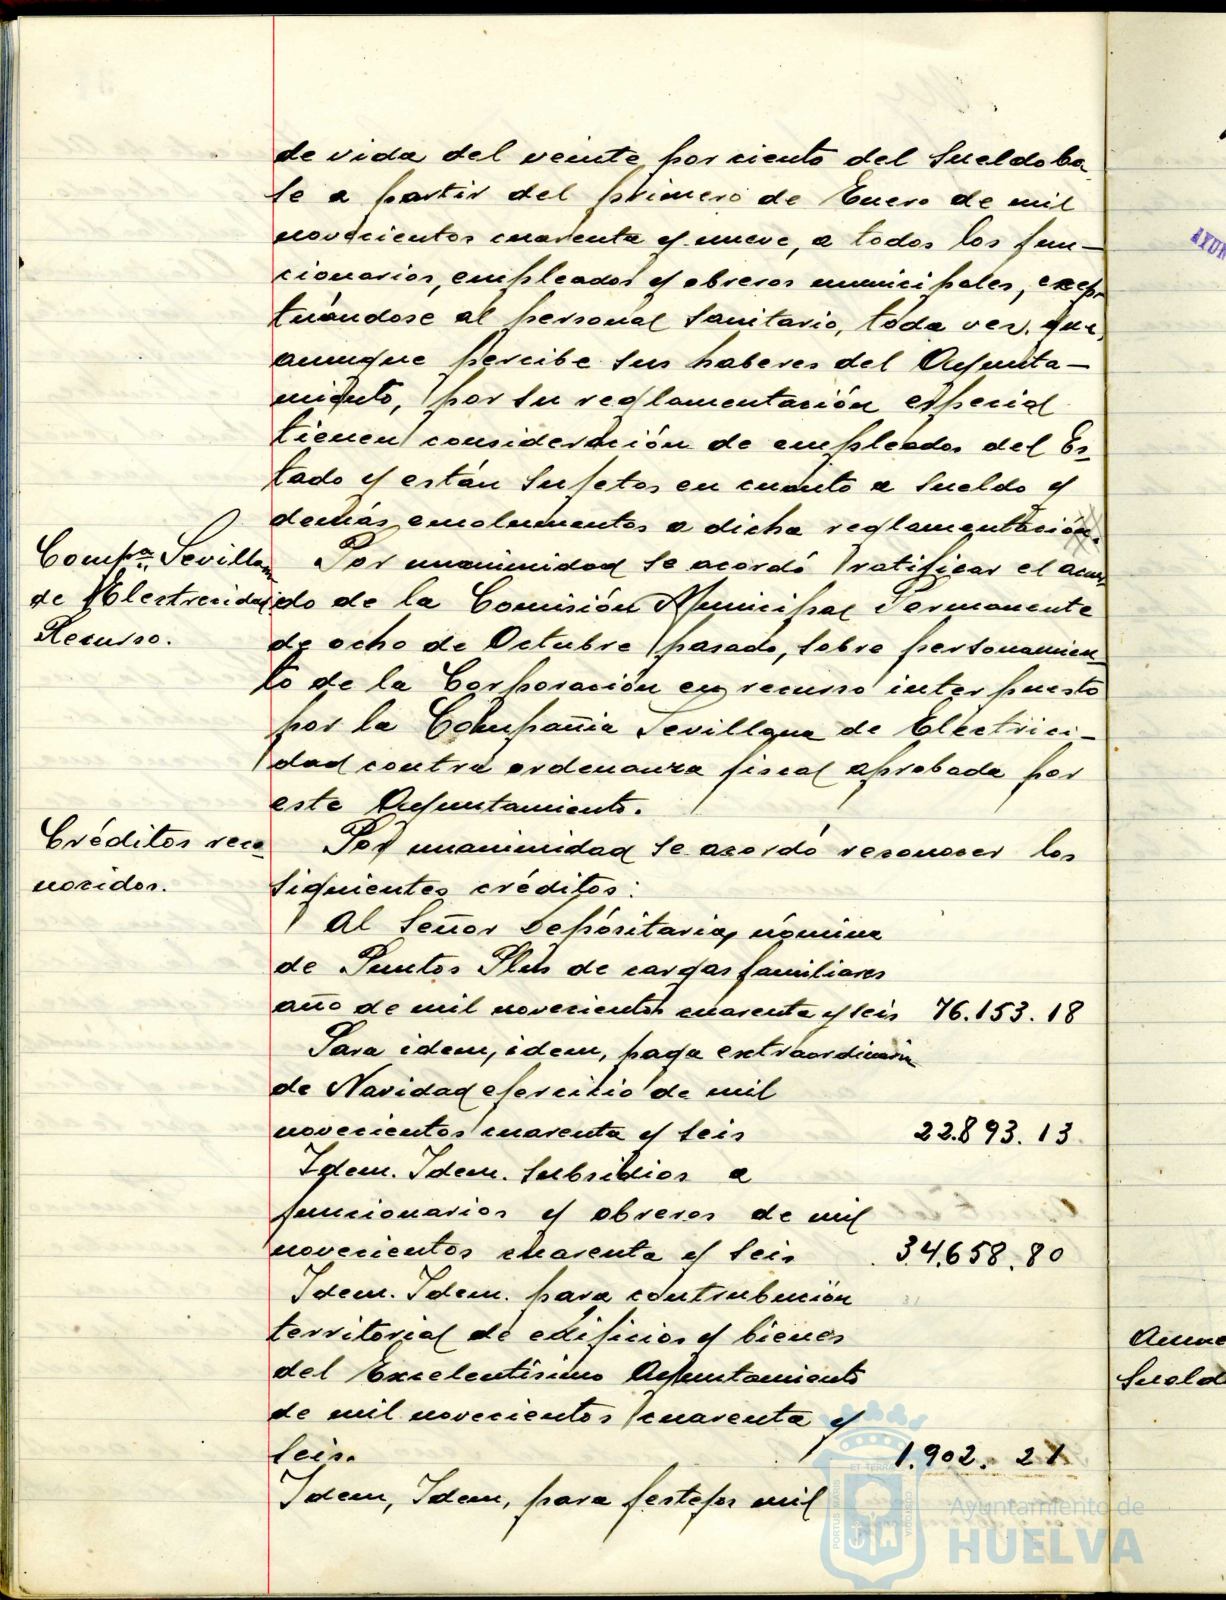 de vida del veinte por ciento del sueldo ba
se a partir del primero de Enero de mil
novecientos cuarenta y nueve, a todos los fun-
cionarios, empleados y obreros municipales, excep-
tuándose al personal sanitario, toda vez que,
aunque percibe sus haberes del Ayunta-
miento, por su reglamentación especial
tienen consideración de empleados del Es-
tado y están sujetos en cuanto a sueldo y
demás emolumentos a dicha reglamentación.
Compª. Sevillana
de Electrecidad
Recurso.
Por unanimidad se acordó ratificar el acuer
do de la Comisión Municipal Permanente
de ocho de Octubre pasado, sobre personamien-
to de la Corporación en recurso interpuesto
por la Compañia Sevillana de Electrici-
dad contra ordenanza fiscal aprobada por
este Ayuntamiento.
Créditos reco-
nocidos.
Por unanimidad se acordó reconocer los
siguientes créditos:
Al Señor Depósitario, nómina
de Puntos Plus de cargas familiares
año de mil novecientos cuarenta y seis 76.153.18
Para idem, idem, paga extraordinaria
de Navidad ejercicio de mil
novecientos cuarenta y seis 22.893.13
Idem. Idem. subsidios a
funcionarios y obreros de mil
novecientos cuarenta y seis 34.658.80
Idem. Idem. para contrubución
territorial de edificios y bienes
del Excelentísimo Ayuntamiento
de mil novecientos cuarenta y
seis. 1.902.21
Idem, Idem, para festejos mil
Sueld
Ayuntamiento de
HUELVA